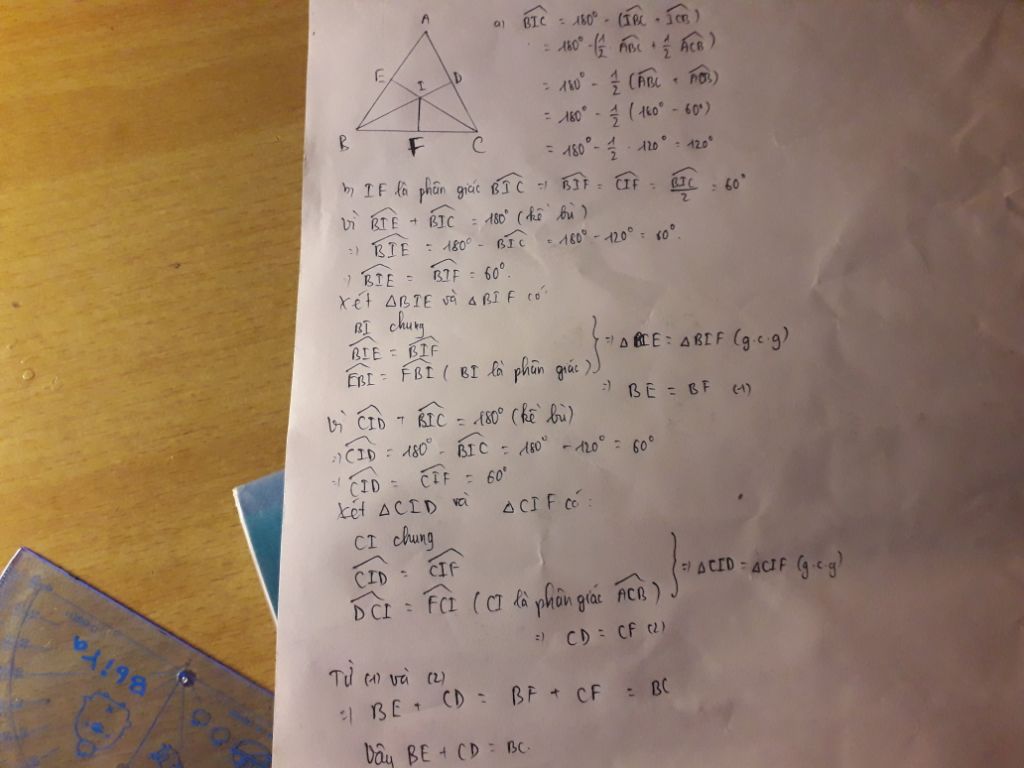 A
E
I
D
B
F
C
a) BIC = 180° - (IBC + ICB)
= 180° - (1/2 . ABC + 1/2 ACB)
= 180° - 1/2 (ABC + ACB)
= 180° - 1/2 (180° - 60°)
= 180° - 1/2 . 120° = 120°
b) IF là phân giác BIC => BIF = CIF = BIC/2 = 60°
Vì BIE + BIC = 180° (kề bù)
=> BIE = 180° - BIC = 180° - 120° = 60°.
=> BIE = BIF = 60°.
Xét △BIE và △BIF có:
BI chung
BIE = BIF
EBI = FBI (BI là phân giác)
} => △BIE = △BIF (g.c.g)
=> BE = BF (1)
Vì CID + BIC = 180° (kề bù)
=> CID = 180° - BIC = 180° - 120° = 60°
=> CID = CIF = 60°
Xét △CID và △CIF có:
CI chung
CID = CIF
DCI = FCI (CI là phân giác ACB)
} => △CID = △CIF (g.c.g)
=> CD = CF (2)
Từ (1) và (2)
=> BE + CD = BF + CF = BC
Vậy BE + CD = BC.